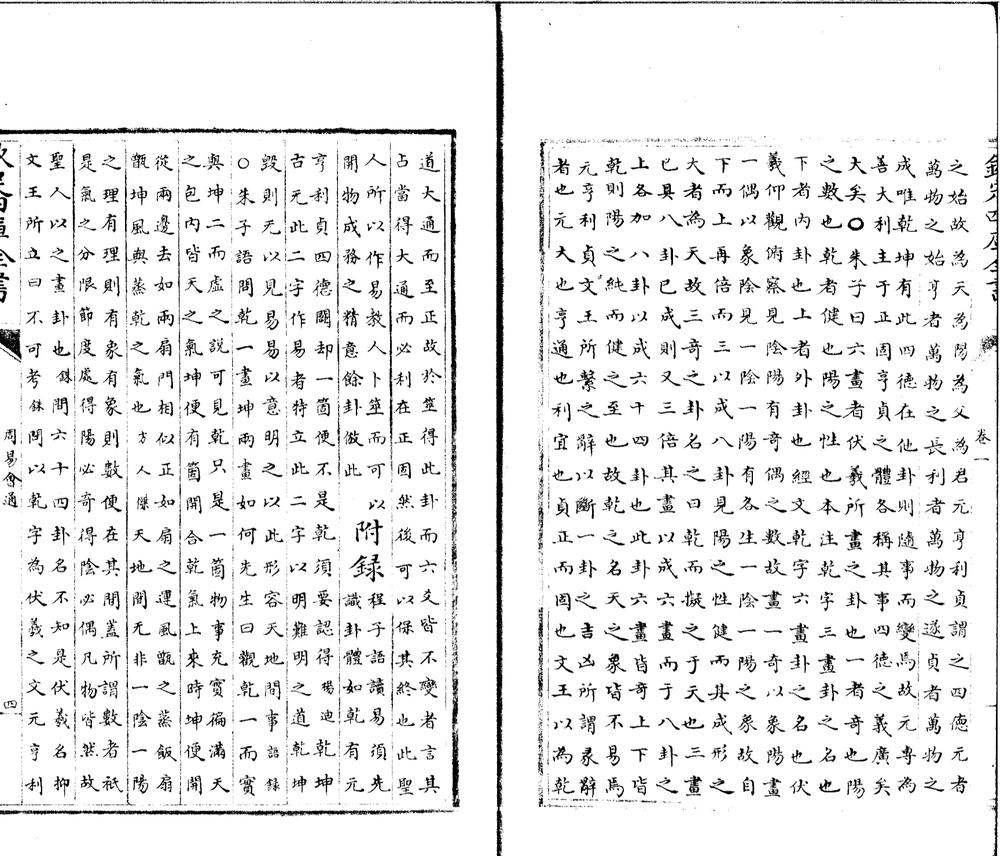 欽定四庫全書
卷一
之始故為天為陽為父為君元亨利貞謂之四德元者
萬物之始亨者萬物之長利者萬物之遂貞者萬物之
成唯乾坤有此四德在他卦則隨事而變焉故元專為
善大利主于正固亨貞之體各稱其事四德之義廣矣
大矣〇朱子曰六畫者伏羲所畫之卦也一者奇也陽
之數也乾者健也陽之性也本注乾字三畫卦之名也
下者內卦也上者外卦也經文乾字六畫卦之名也伏
羲仰觀俯察見陰陽有奇偶之數故畫一奇以象陽畫
一偶以象陰見一陰一陽有各生一陰一陽之象故自
下而上再倍而三以成八卦見陽之性健而其成形之
大者為天故三奇之卦名之曰乾而擬之于天也三畫
已具八卦已成則又三倍其畫以成六畫而于八卦之
上各加八卦以成六十四卦也此卦六畫皆奇上下皆
乾則陽之純而健之至也故乾之名天之象皆不易焉
元亨利貞文王所繫之辭以斷一卦之吉凶所謂彖辭
者也元大也亨通也利宜也貞正而固也文王以為乾
道大通而至正故於筮得此卦而六爻皆不變者言其
占當得大通而必利在正固然後可以保其終也此聖
人所以作易教人卜筮而可以
開物成務之精意餘卦倣此
附錄
程子語讀易須先
識卦體如乾有元
亨利貞四德闕却一箇便不是乾須要認得楊迪乾坤
古无此二字作易者特立此二字以明難明之道乾坤
毀則无以見易易以意明之以此形容天地間事語錄
〇朱子語問乾一畫坤兩畫如何先生曰觀乾一而實
與坤二而虛之說可見乾只是一箇物事充實徧滿天
之包內皆天之氣坤便有箇開合乾氣上來時坤便開
從兩邊去如兩扇門相似正如扇之運風甑之蒸飯扇
甑坤風與蒸乾之氣也方人傑天地間无非一陰一陽
之理有理則有象有象則數便在其間蓋所謂數者祇
是氣之分限節度處得陽必奇得陰必偶凡物皆然故
聖人以之畫卦也銖問六十四卦名不知是伏羲名抑
文王所立曰不可考銖問以乾字為伏羲之文元亨利
周易會通
四